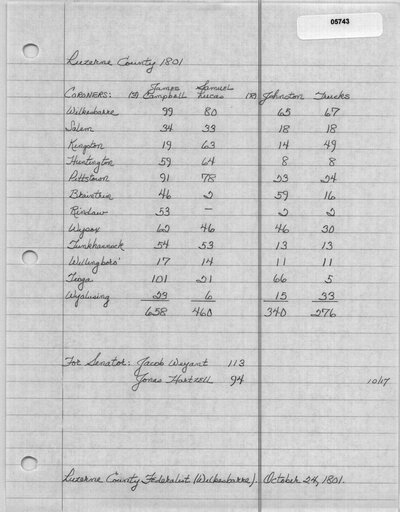 05743
Luzerne County 1801
James Samuel
CORONERS: (3) Campbell Lucas (18) Johnston Trucks
Wilkesbarre 99 80 65 67
Salem 34 33 18 18
Kingston 19 63 14 49
Huntington 59 64 8 8
Pittstown 91 78 23 24
Braintrim 46 2 59 16
Rindaw 53 – 2 2
Wysox 62 46 46 30
Tunkhannock 54 53 13 13
Willingboro' 17 14 11 11
Tioga 101 21 66 5
Wyalusing 23 6 15 33
658 460 340 276
For Senator: Jacob Weygant 113
Jonas Hartzell 94 10/17
Luzerne County Federalist (Wilkesbarre). October 24, 1801.